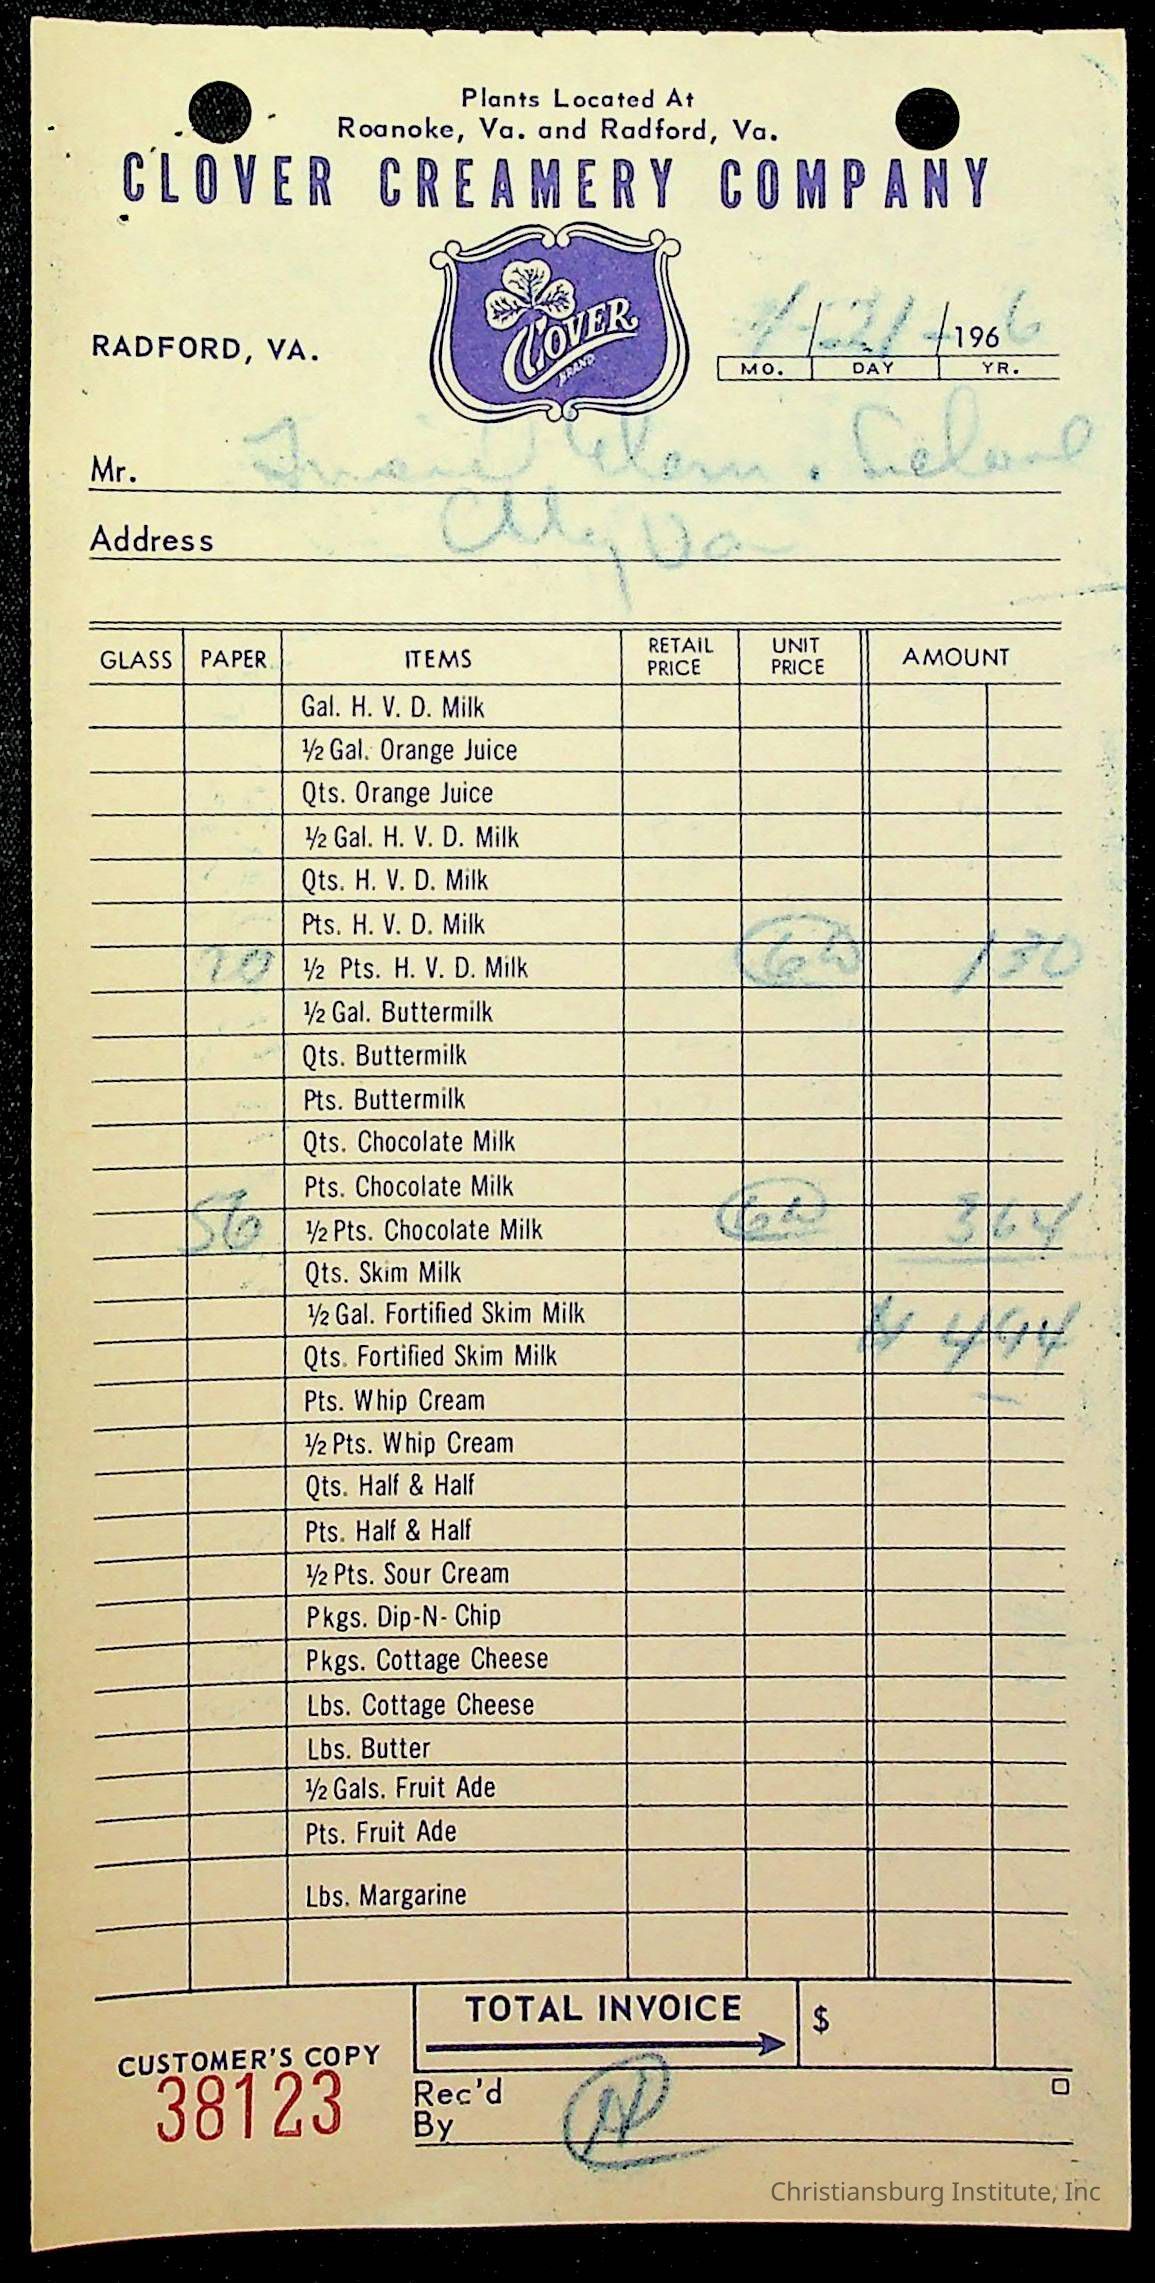 Plants Located At
Roanoke, Va. and Radford, Va.
CLOVER CREAMERY COMPANY
CLOVER
BRAND
RADFORD, VA.
21 1966
MO. DAY YR.
Mr. Elem. School
Address Va
GLASS PAPER ITEMS RETAIL PRICE UNIT PRICE AMOUNT
Gal. H. V. D. Milk
½ Gal. Orange Juice
Qts. Orange Juice
½ Gal. H. V. D. Milk
Qts. H. V. D. Milk
Pts. H. V. D. Milk
20 ½ Pts. H. V. D. Milk 1 30
½ Gal. Buttermilk
Qts. Buttermilk
Pts. Buttermilk
Qts. Chocolate Milk
Pts. Chocolate Milk
56 ½ Pts. Chocolate Milk 3 64
Qts. Skim Milk
½ Gal. Fortified Skim Milk $ 4 94
Qts. Fortified Skim Milk
Pts. Whip Cream
½ Pts. Whip Cream
Qts. Half & Half
Pts. Half & Half
½ Pts. Sour Cream
Pkgs. Dip-N-Chip
Pkgs. Cottage Cheese
Lbs. Cottage Cheese
Lbs. Butter
½ Gals. Fruit Ade
Pts. Fruit Ade
Lbs. Margarine
TOTAL INVOICE $
CUSTOMER'S COPY
38123
Rec'd
By
Christiansburg Institute, Inc